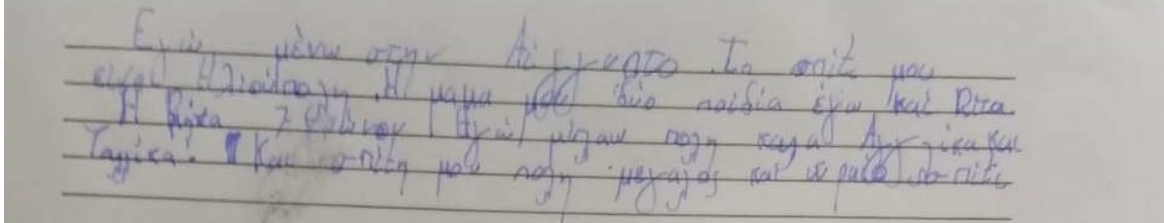 Εγώ μένω στην Αίγυπτο. Το σπίτι μου
είναι Ηλιούπολη. Η μαμα μου δύο παιδία έγω και Ρίτα.
Η Ρίτα 7 χρώνου. Εγώ μιλαω πολη καλα Αγγλικα και
Γαλικα. Και σπίτη μου πολη μεγαλος και ωραίο σπίτι